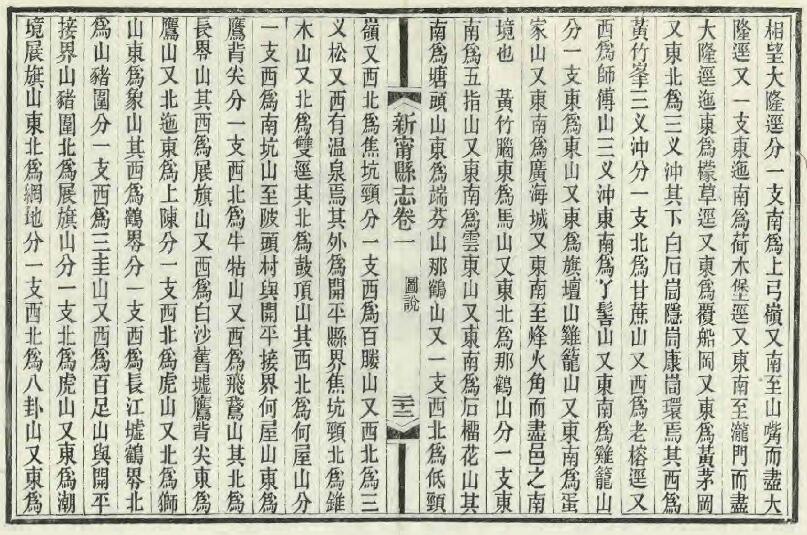 相望大隆逕分一支南爲上弓嶺又南至山嘴而盡大
隆逕又一支東迤南爲荷木堡逕又東南至瀧門而盡
大隆逕迤東爲檬草逕又東爲覆船岡又東爲黃茅岡
又東北爲三义沖其下白石峝隱峝康峝環焉其西爲
黃竹峯三义沖分一支北爲甘蔗山又西爲老榕逕又
西爲師傅山三义沖東南爲丫髻山又東南爲雞籠山
分一支東爲東山又東爲旗壇山雞籠山又東南爲蛋
家山又東南爲廣海城又東南至烽火角而盡邑之南
境也　黃竹腦東爲馬山又東北爲那鶴山分一支東
南爲五指山又東南爲雲東山又東南爲石榴花山其
南爲塘頭山東爲端芬山那鶴山又一支西北爲低頸
新甯縣志卷一　圖說　二十三
嶺又西北爲焦坑頸分一支西爲百勝山又西北爲三
义松又西有温泉焉其外爲開平縣界焦坑頸北爲錐
木山又北爲雙逕其北爲鼓頂山其西北爲何屋山分
一支西爲南坑山至陂頭村與開平接界何屋山東爲
鷹背尖分一支西北爲牛牯山又西爲飛鵞山其北爲
長㟁山其西爲展旗山又西爲白沙舊墟鷹背尖東爲
鷹山又北迤東爲上陳分一支西北爲虎山又北爲獅
山東爲象山其西爲鶴㟁分一支西爲長江墟鶴㟁北
爲山豬圍分一支西爲三圭山又西爲百足山與開平
接界山豬圍北爲展旗山分一支北爲虎山又東爲潮
境展旗山東北爲網地分一支西北爲八卦山又東爲